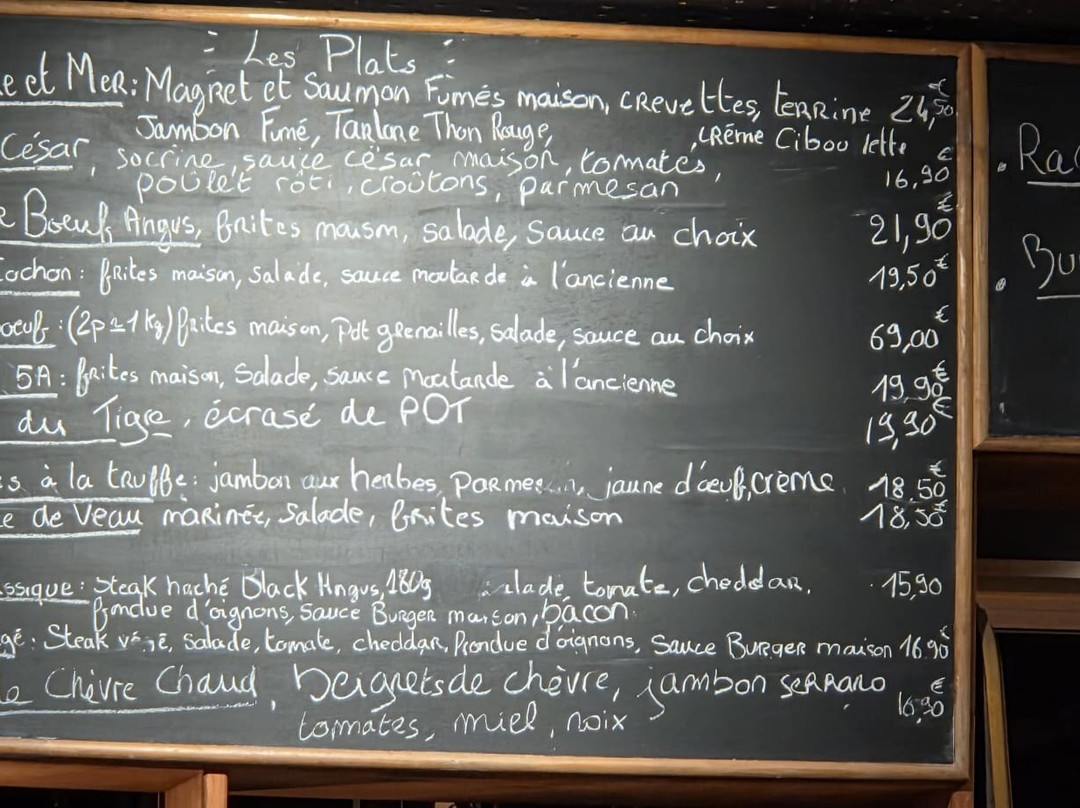 Les Plats
e et MER: Magret et Saumon Fumés maison, crevettes, terrine 24,50€
Jambon Fumé, Tartare Thon Rouge, crème Ciboulette
César, socrine, sauce césar maison, tomates, 16,90€
poulet rôti, croûtons, parmesan
e Boeuf Angus, frites maison, salade, sauce au choix 21,90€
Cochon: frites maison, salade, sauce moutarde à l'ancienne 19,50€
oeuf: (2p ≃ 1 kg) frites maison, pdt grenailles, salade, sauce au choix 69,00€
5A: frites maison, Salade, sauce Moutarde à l'ancienne 19,90€
du Tigre, écrasé de PDT 19,90€
s à la truffe: jambon aux herbes, Parmesan, jaune d'œuf, crème 18,50€
e de Veau marinée, Salade, frites maison 18,50€
ssique: Steak haché Black Angus, 180g salade, tomate, cheddar, 15,90
fondue d'oignons, Sauce Burger maison, bacon.
gé: Steak végé, salade, tomate, cheddar, fondue d'oignons, Sauce Burger maison 16,90€
e Chèvre Chaud, beignets de chèvre, jambon serrano 16,90€
tomates, miel, noix
. Ra
. Bu